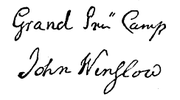 Grand Pré" Camp
John Winslow